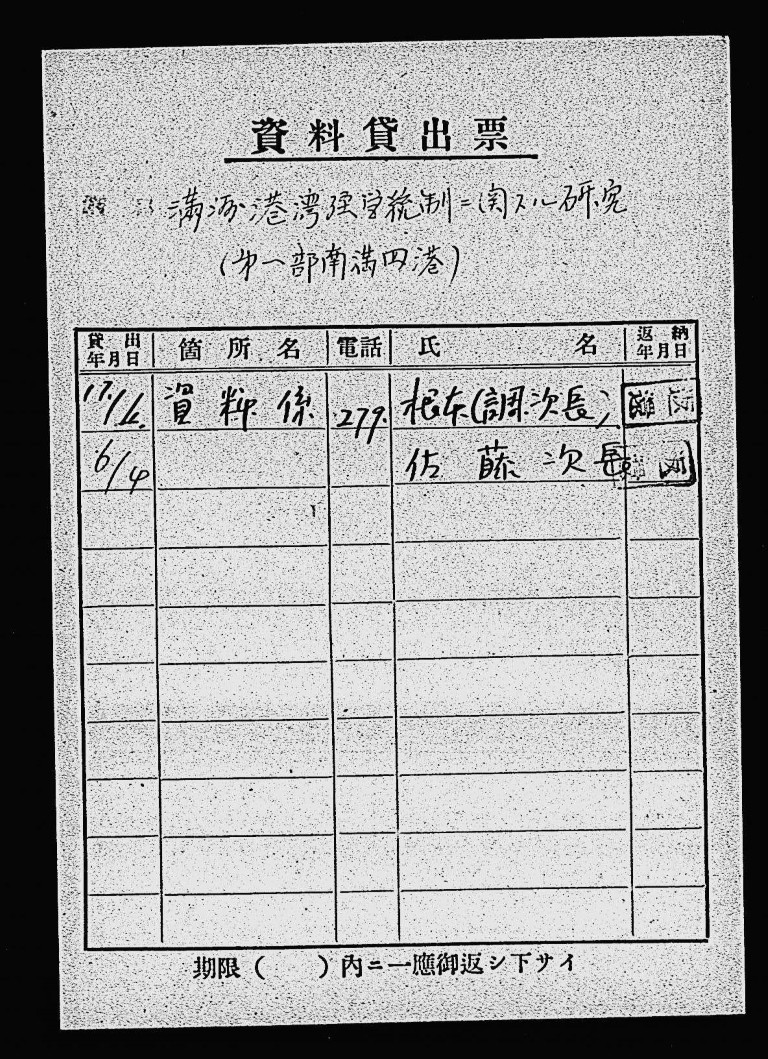 資料貸出票
満洲港湾経営統制ニ関スル研究
(第一部南満四港)
貸出年月日 箇所名 電話 氏名 返納年月日
17/6. 資料係 279. 根本(調次長)
6/4 佐藤次長
期限( )内ニ一應御返シ下サイ